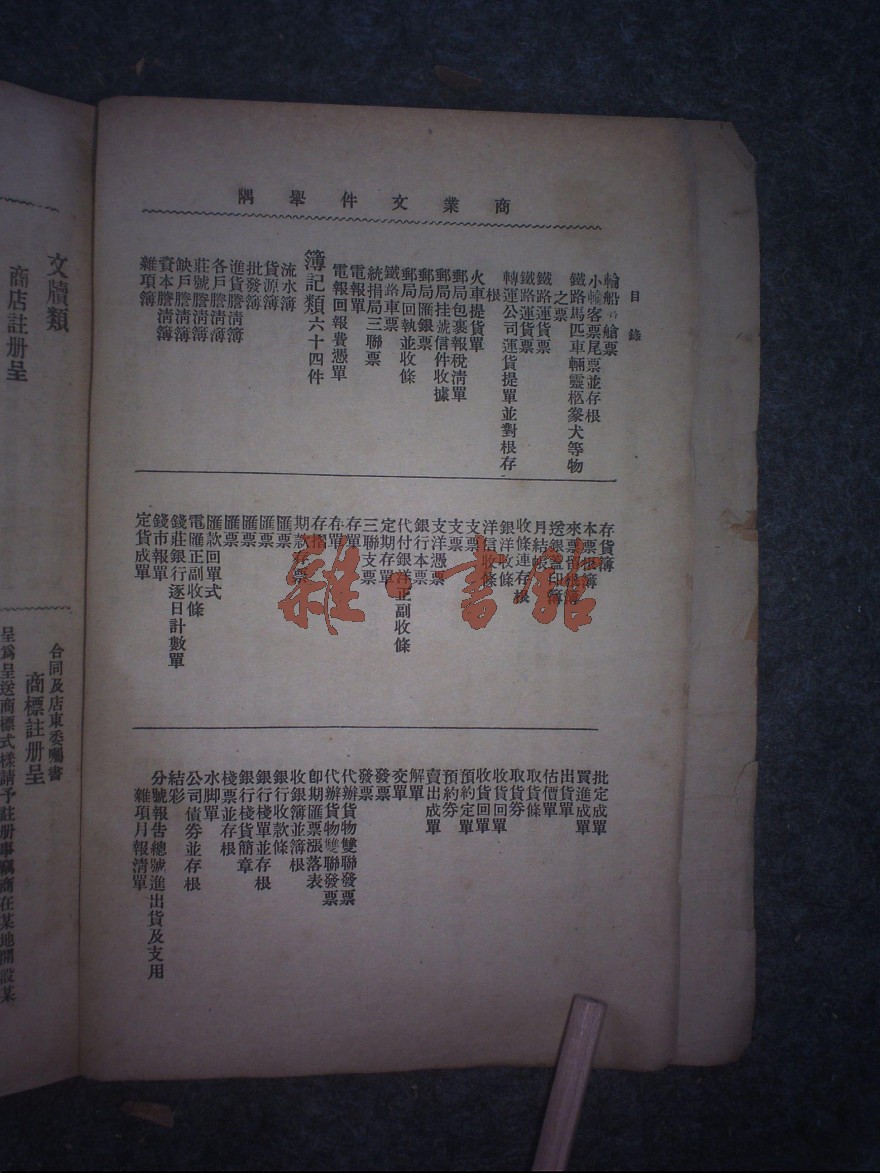 商業文件舉隅
目錄
輪船 艙票
小輪客票尾票並存根
鐵路馬匹車輛靈柩豢犬等物
之票
鐵路運貨票
鐵路運貨票
轉運公司運貨提單並對根存
根
火車提貨單
郵局包裹報稅清單
郵局挂號信件收據
郵局匯銀票
郵局回執並收條
鐵路車票
統捐局三聯票
電報單
電報回報費憑單
簿記類六十四件
流水簿
貨源簿
批發簿
進貨謄清簿
各戶謄清簿
莊號謄清簿
缺戶謄清簿
資本謄清簿
雜項簿
存貨簿
本票根簿
來票留根簿
送銀蓋印簿
月結帳
收條連存根
銀洋收條
洋信收條
支票
支票
支洋憑票
銀行本票
代付銀洋正副收條
定期存單
三聯支票
存單
存單
存摺
期款存票
匯票
匯票
匯票
匯票
匯款回單式
電匯正副收條
錢莊銀行逐日計數單
錢市報單
定貨成單
批定成單
買進成單
出貨單
估價單
取貨條
取貨券
收貨回單
收貨回單
預約定單
預約券
賣出成單
解單
交單
發票
發票
代辦貨物雙聯發票
代辦貨物雙聯發票
即期匯票漲落表
收銀簿並簿根
銀行收款條
銀行棧單並存根
銀行棧貨簡章
棧票並存根
水脚單
公司債券並存根
結彩
分號報告總號進出貨及支用
雜項月報清單
文牘類
商店註册呈
合同及店東委囑書
商標註册呈
呈爲呈送商標式樣請予註册事竊商在某地開設某
雜·書館